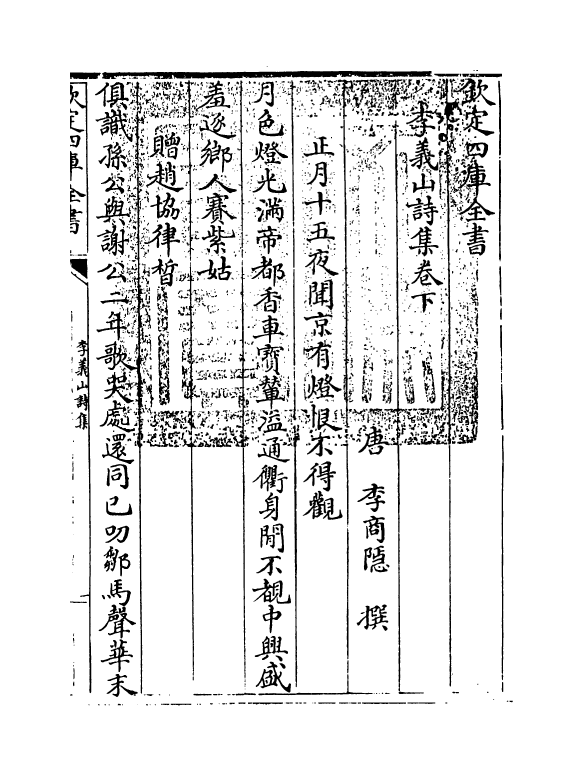 欽定四庫全書
李義山詩集卷下
唐 李商隱 撰
正月十五夜聞京有燈恨不得觀
月色燈光滿帝都香車寶輦溢通衢身閒不覩中興盛
羞逐鄉人賽紫姑
贈趙協律晳
俱識孫公與謝公二年歌哭處還同已叨鄒馬聲華末
欽定四庫全書
李義山詩集